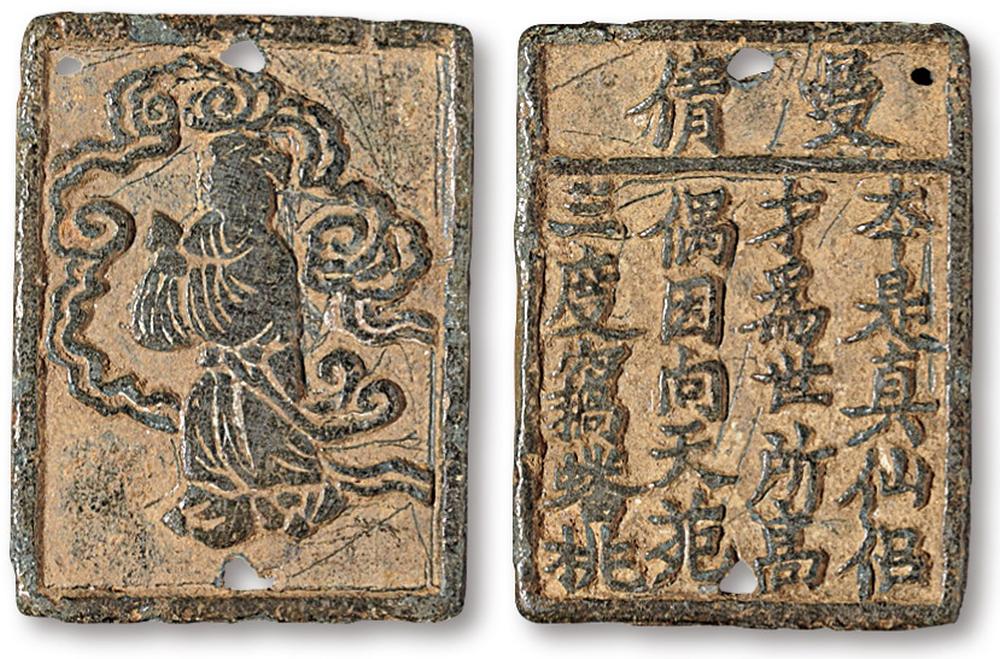 曼倩
本是真仙侣
才爲世所高
偶因向天苑
三度竊此桃